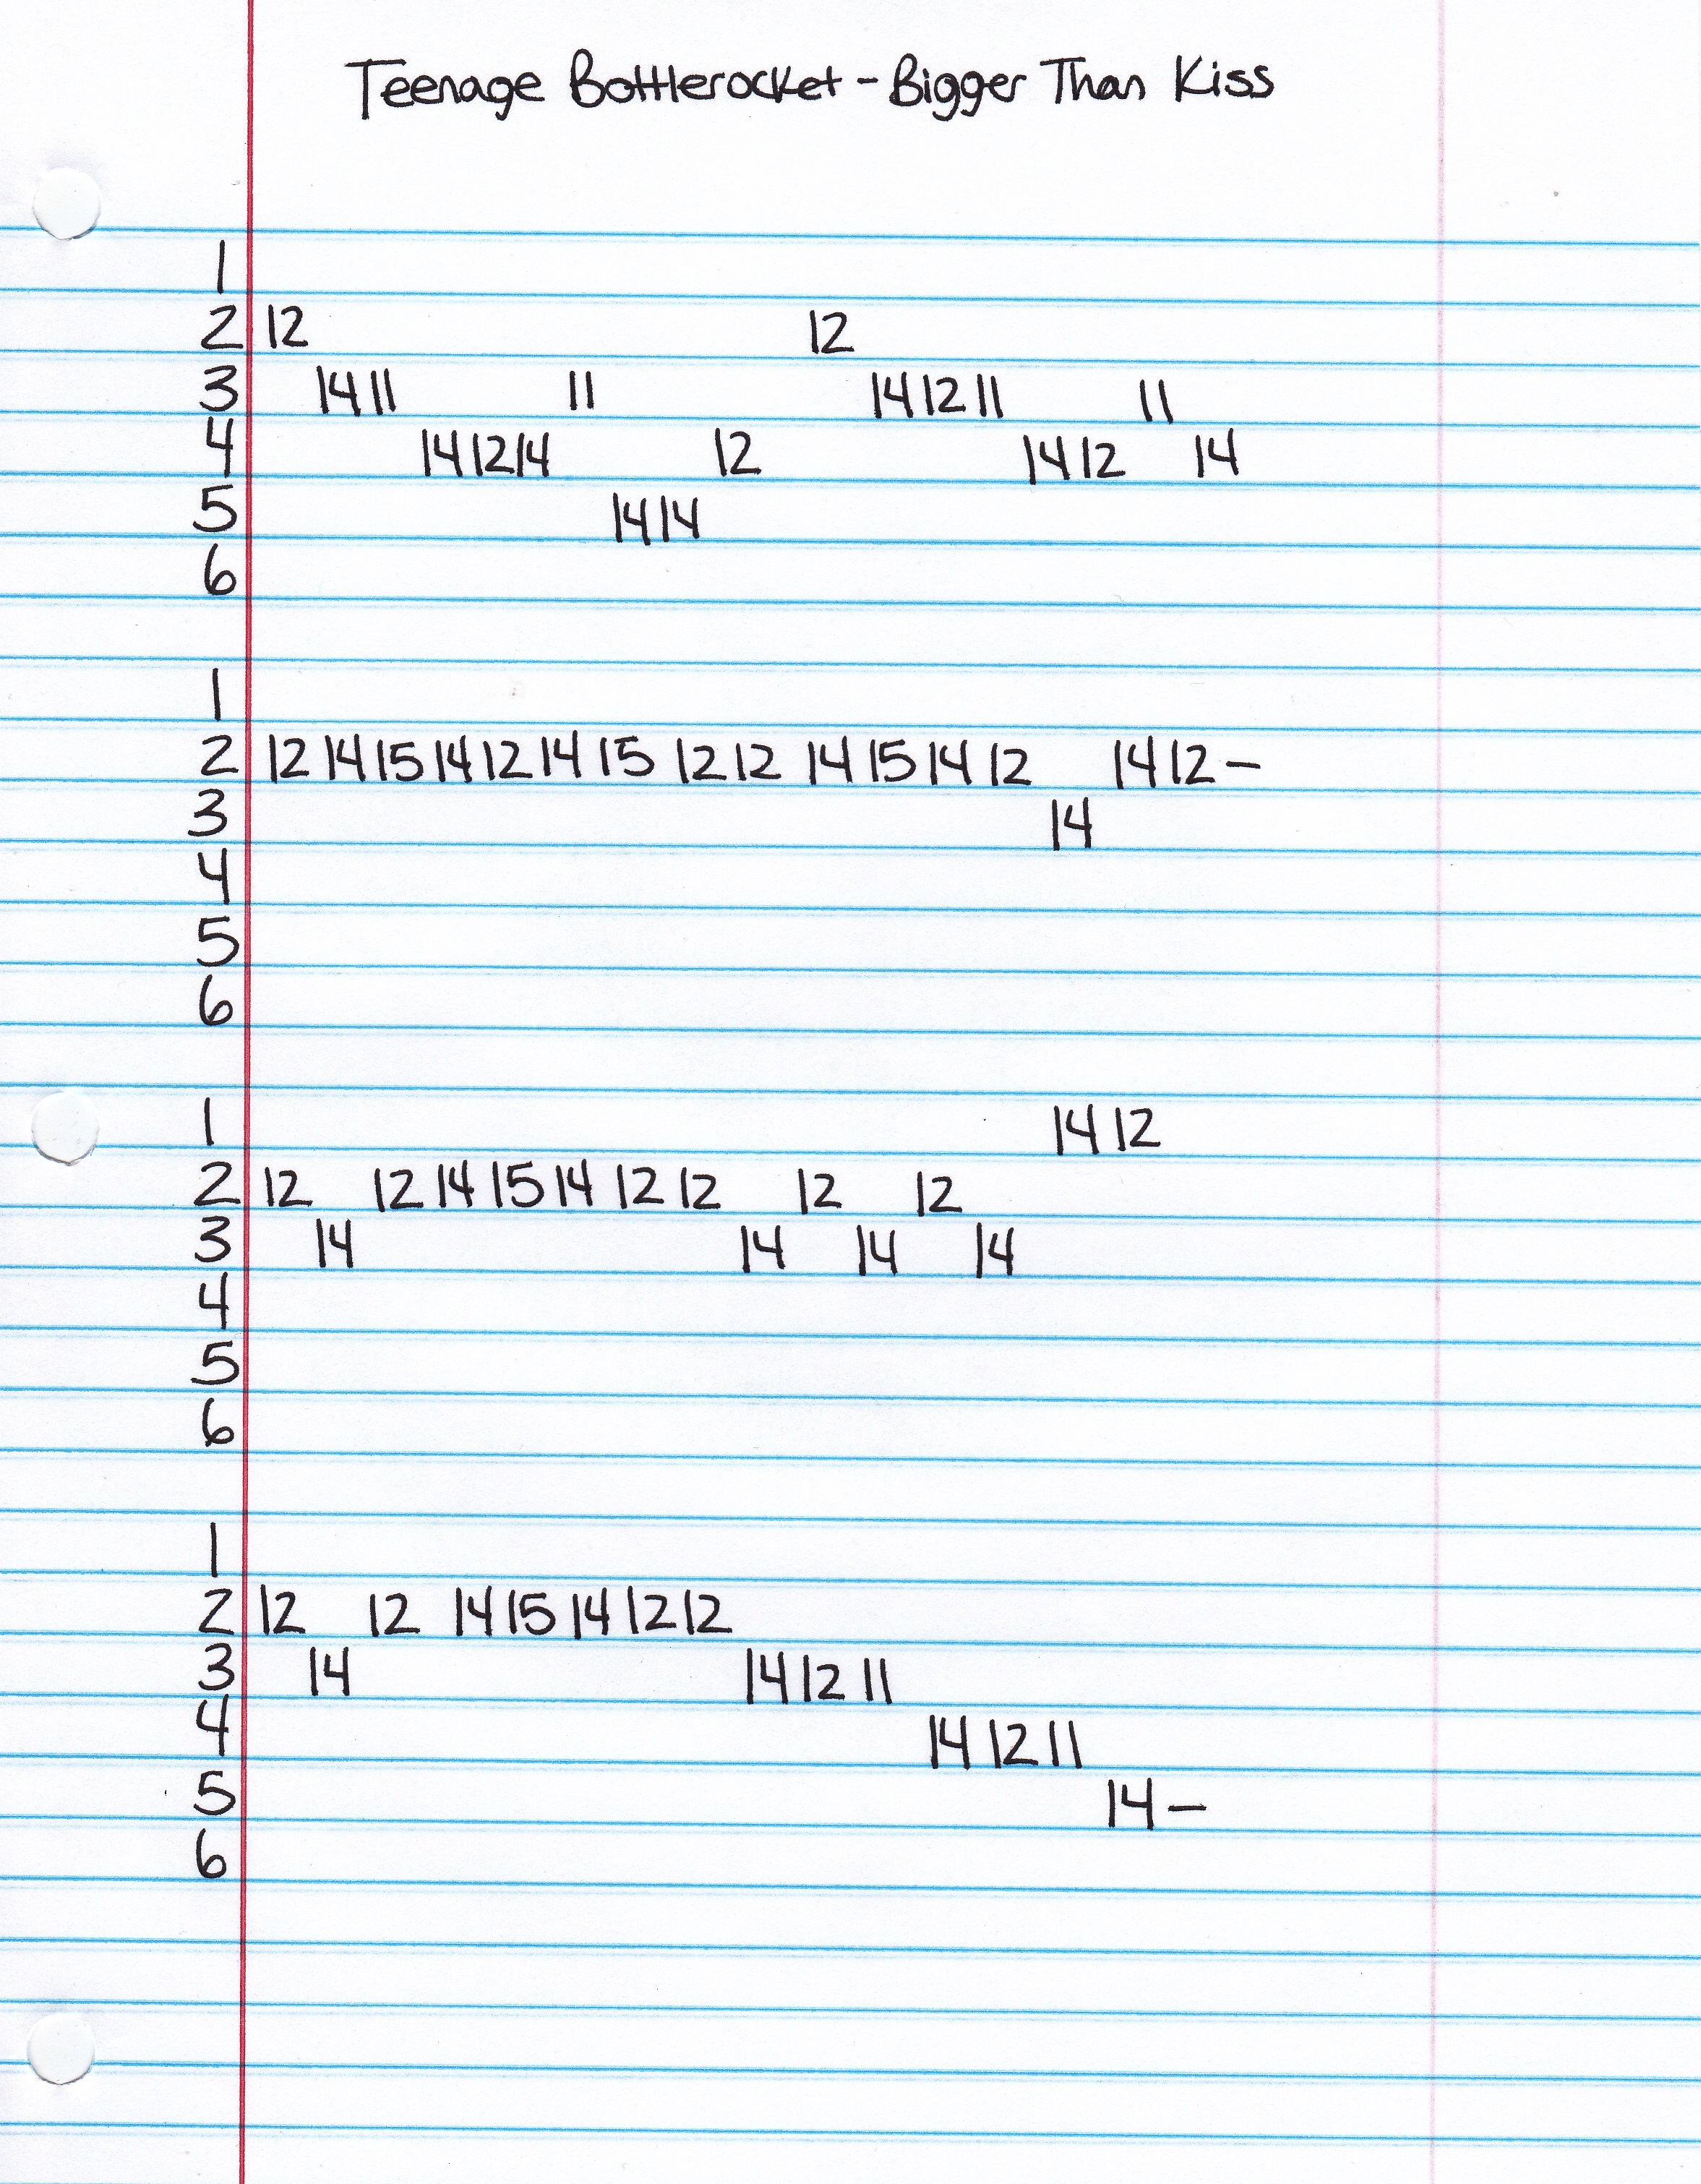 Teenage Bottlerocket - Bigger Than Kiss
1
2 12 12
3 14 11 11 14 12 11 11
4 14 12 14 12 14 12 14
5 14 14
6
1
2 12 14 15 14 12 14 15 12 12 14 15 14 12 14 12 -
3 14
4
5
6
1 14 12
2 12 12 14 15 14 12 12 12 12
3 14 14 14 14
4
5
6
1
2 12 12 14 15 14 12 12
3 14 14 12 11
4 14 12 11
5 14 -
6